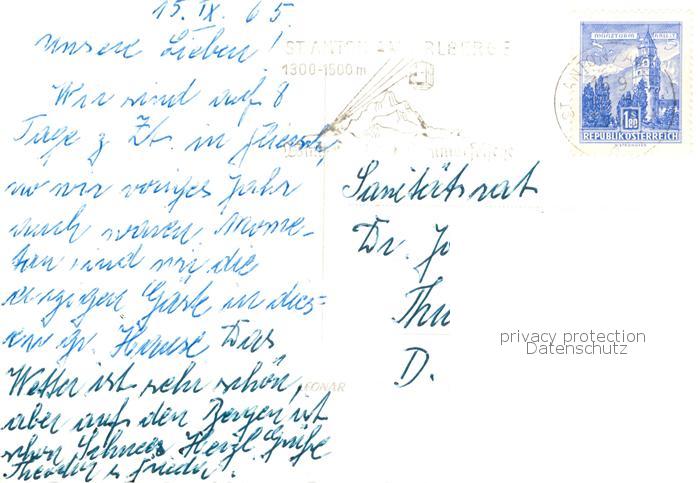 15. IX. 65.
unsere Lieben!
Wir sind auf 8
Tage z. Zt. in Fliersch,
wo wir voriges Jahr
auch waren. Momen-
tan sind wir die
einzigen Gäste in dies-
em gr. Hause. Das
Wetter ist sehr schön,
aber auf den Bergen ist
schon Schnee. Herzl. Grüße
Theodor u. Frieda.
ST. ANTON AM ARLBERG
1300-1500 m
MÜNZTURM HALL I. T.
1.80
REPUBLIK ÖSTERREICH
ST. ANTON
Sanitätsrat
Dr. Jo
Thu
D.
privacy protection
Datenschutz